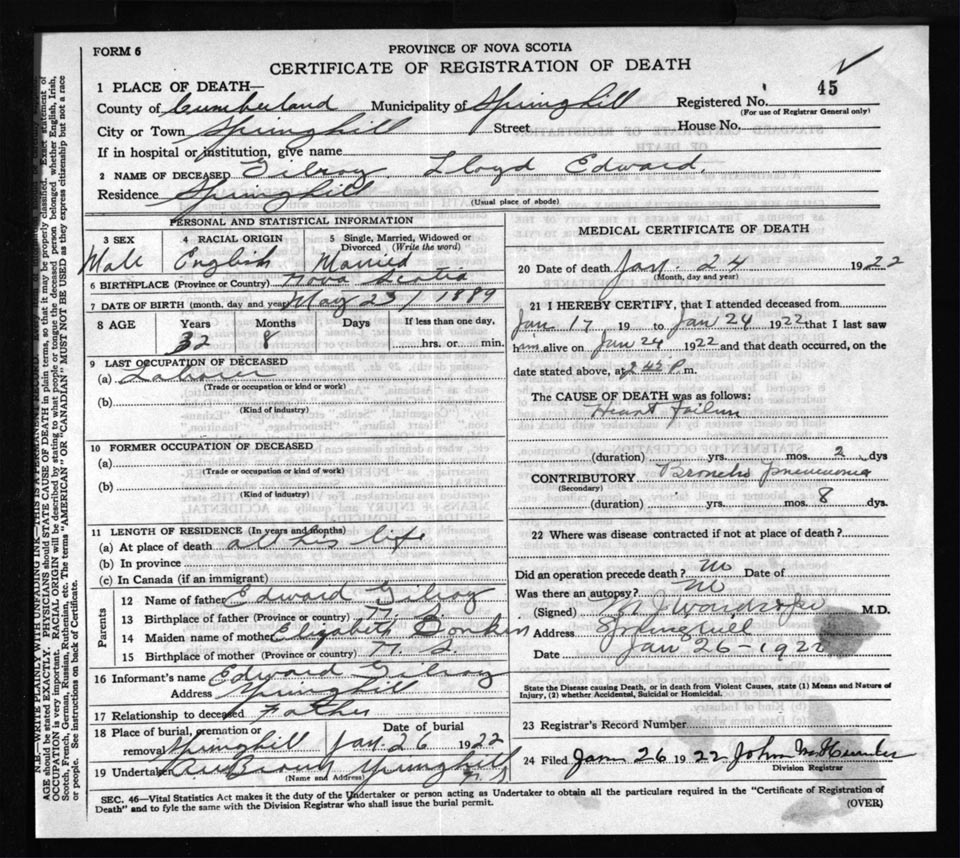 FORM 6
PROVINCE OF NOVA SCOTIA
CERTIFICATE OF REGISTRATION OF DEATH
1 PLACE OF DEATH—
County of Cumberland Municipality of Springhill Registered No. 45
(For use of Registrar General only)
City or Town Springhill Street House No.
If in hospital or institution, give name
2 NAME OF DECEASED Gilroy Lloyd Edward.
Residence Springhill
(Usual place of abode)
PERSONAL AND STATISTICAL INFORMATION
3 SEX 4 RACIAL ORIGIN 5 Single, Married, Widowed or Divorced (Write the word)
Male English Married
6 BIRTHPLACE (Province or Country) Nova Scotia
7 DATE OF BIRTH (month, day and year) May 23/1889
8 AGE Years Months Days If less than one day,
32 8 hrs. or min.
9 LAST OCCUPATION OF DECEASED
(a) Laborer
(Trade or occupation or kind or work)
(b)
(Kind of industry)
10 FORMER OCCUPATION OF DECEASED
(a)
(Trade or occupation or kind of work)
(b)
(Kind of industry)
11 LENGTH OF RESIDENCE (In years and months)
(a) At place of death all his life
(b) In province
(c) In Canada (if an immigrant)
Parents
12 Name of father Edward Gilroy
13 Birthplace of father (Province or country) N. S.
14 Maiden name of mother Elizabeth
15 Birthplace of mother (Province or country) N. S.
16 Informant's name Edward Gilroy
Address Springhill
17 Relationship to deceased Father
18 Place of burial, cremation or removal Springhill Date of burial Jan. 26 1922
19 Undertaker Brown Springhill
(Name and Address)
MEDICAL CERTIFICATE OF DEATH
20 Date of death Jan. 24 1922
(Month, day and year)
21 I HEREBY CERTIFY, that I attended deceased from
Jan 17 19 to Jan 24 1922 that I last saw
him alive on Jan 24 1922 and that death occurred, on the
date stated above, at 2 45 P. m.
The CAUSE OF DEATH was as follows:
Heart failure
(duration) yrs. mos. 2 dys
CONTRIBUTORY Broncho pneumonia
(Secondary)
(duration) yrs. mos. 8 dys.
22 Where was disease contracted if not at place of death?
Did an operation precede death? no Date of
Was there an autopsy? no
(Signed) M. D.
Address Springhill
Date Jan 26-1922
State the Disease causing Death, or in death from Violent Causes, state (1) Means and Nature of
Injury, (2) whether Accidental, Suicidal or Homicidal.
23 Registrar's Record Number
24 Filed Jan 26 1922 John
Division Registrar
SEC. 46—Vital Statistics Act makes it the duty of the Undertaker or person acting as Undertaker to obtain all the particulars required in the "Certificate of Registration of
Death" and to fyle the same with the Division Registrar who shall issue the burial permit.
(OVER)